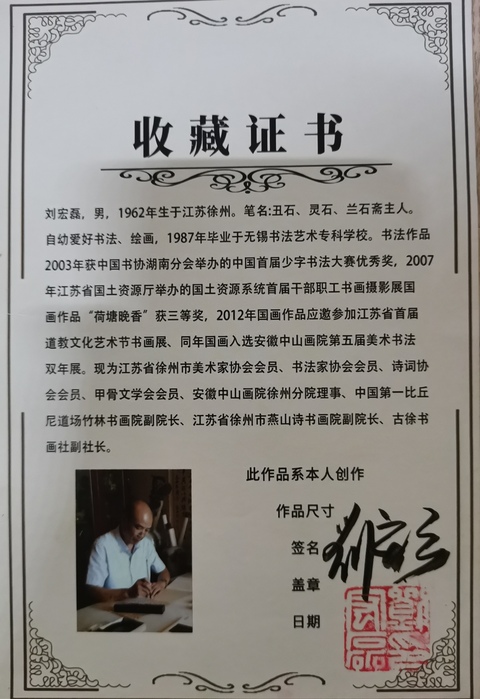 收藏证书
刘宏磊，男，1962年生于江苏徐州。笔名:丑石、灵石、兰石斋主人。
自幼爱好书法、绘画，1987年毕业于无锡书法艺术专科学校。书法作品
2003年获中国书协湖南分会举办的中国首届少字书法大赛优秀奖，2007
年江苏省国土资源厅举办的国土资源系统首届干部职工书画摄影展国
画作品“荷塘晚香”获三等奖，2012年国画作品应邀参加江苏省首届
道教文化艺术节书画展、同年国画入选安徽中山画院第五届美术书法
双年展。现为江苏省徐州市美术家协会会员、书法家协会会员、诗词协
会会员、甲骨文学会会员、安徽中山画院徐州分院理事、中国第一比丘
尼道场竹林书画院副院长、江苏省徐州市燕山诗书画院副院长、古徐书
画社副社长。
此作品系本人创作
作品尺寸
签名
盖章
日期